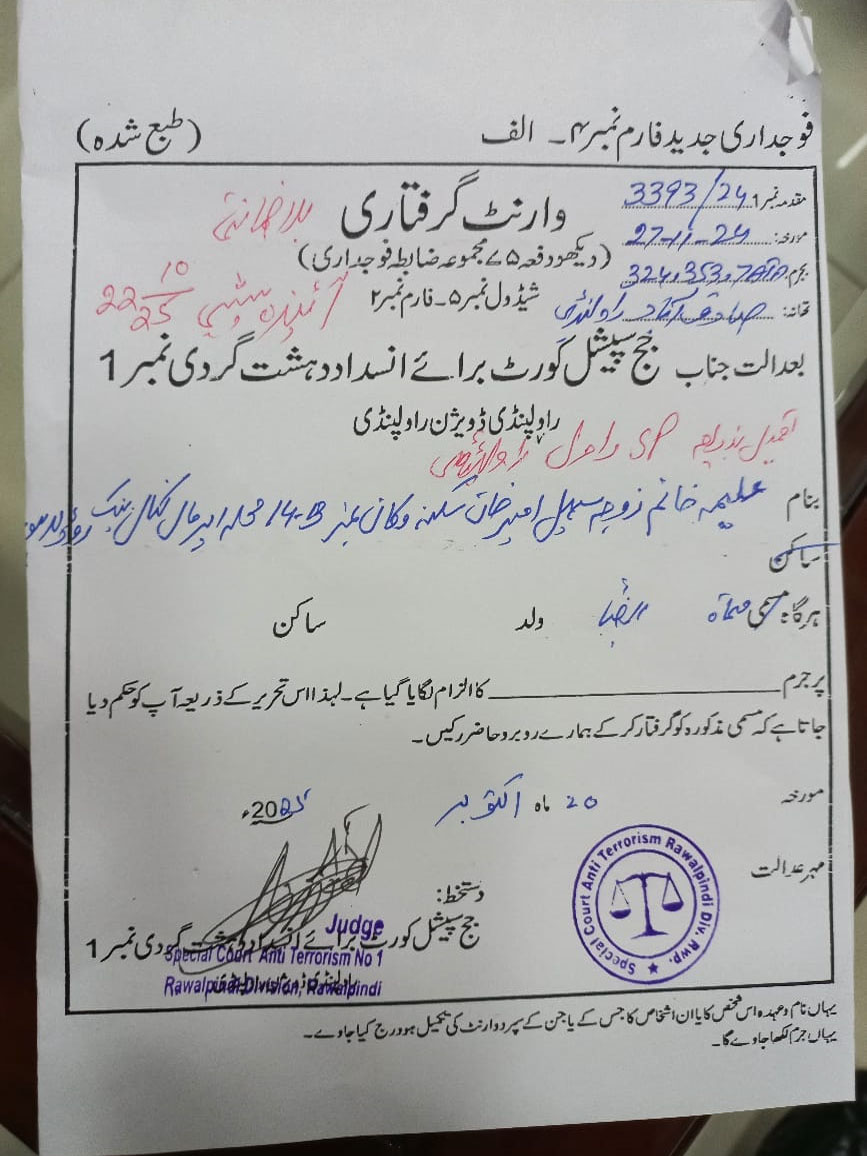 فوجداری جدید فارم نمبر ۴۔ الف (طبع شدہ)
مقدمہ نمبر 3393/24
مورخہ: 27-11-24
بجرم: 324، 353، 7ATA
تھانہ: صادق آباد راولپنڈی
وارنٹ گرفتاری بلا ضمانتی
(دیکھو دفعہ ۷۵ مجموعہ ضابطہ فوجداری)
شیڈول نمبر ۵۔ فارم نمبر ۲
آئندہ پیشی 22 10/25
بعدالت جناب جج سپیشل کورٹ برائے انسداد دہشت گردی نمبر 1
راولپنڈی ڈویژن راولپنڈی
تعمیل بذریعہ SP راول راولپنڈی
بنام علیمہ خانم زوجہ سہیل امیر خان سکنہ مکان نمبر 14-B محلہ اپر مال کنال بنک روڈ
ساکن
ہرگاہ مسمی مسماۃ الضاً ولد ساکن
پر جرم کا الزام لگایا گیا ہے۔ لہذا اس تحریر کے ذریعہ آپ کو حکم دیا
جاتا ہے کہ مسمی مذکورہ کو گرفتار کر کے ہمارے روبرو حاضر رکیں۔
مورخہ 20 ماہ اکتوبر 2025ء
مہر عدالت
Special Court Anti Terrorism Rawalpindi Div. Rwp.
دستخط:
جج سپیشل کورٹ برائے انسداد دہشت گردی نمبر 1
راولپنڈی ڈویژن راولپنڈی
Judge
Special Court Anti Terrorism No 1
Rawalpindi Division, Rawalpindi
یہاں نام و عہدہ اس شخص کا یا ان اشخاص کا جس کے یا جن کے سپرد وارنٹ کی تکمیل ہو درج کیا جاوے۔
یہاں جرم لکھا جاوے گا۔